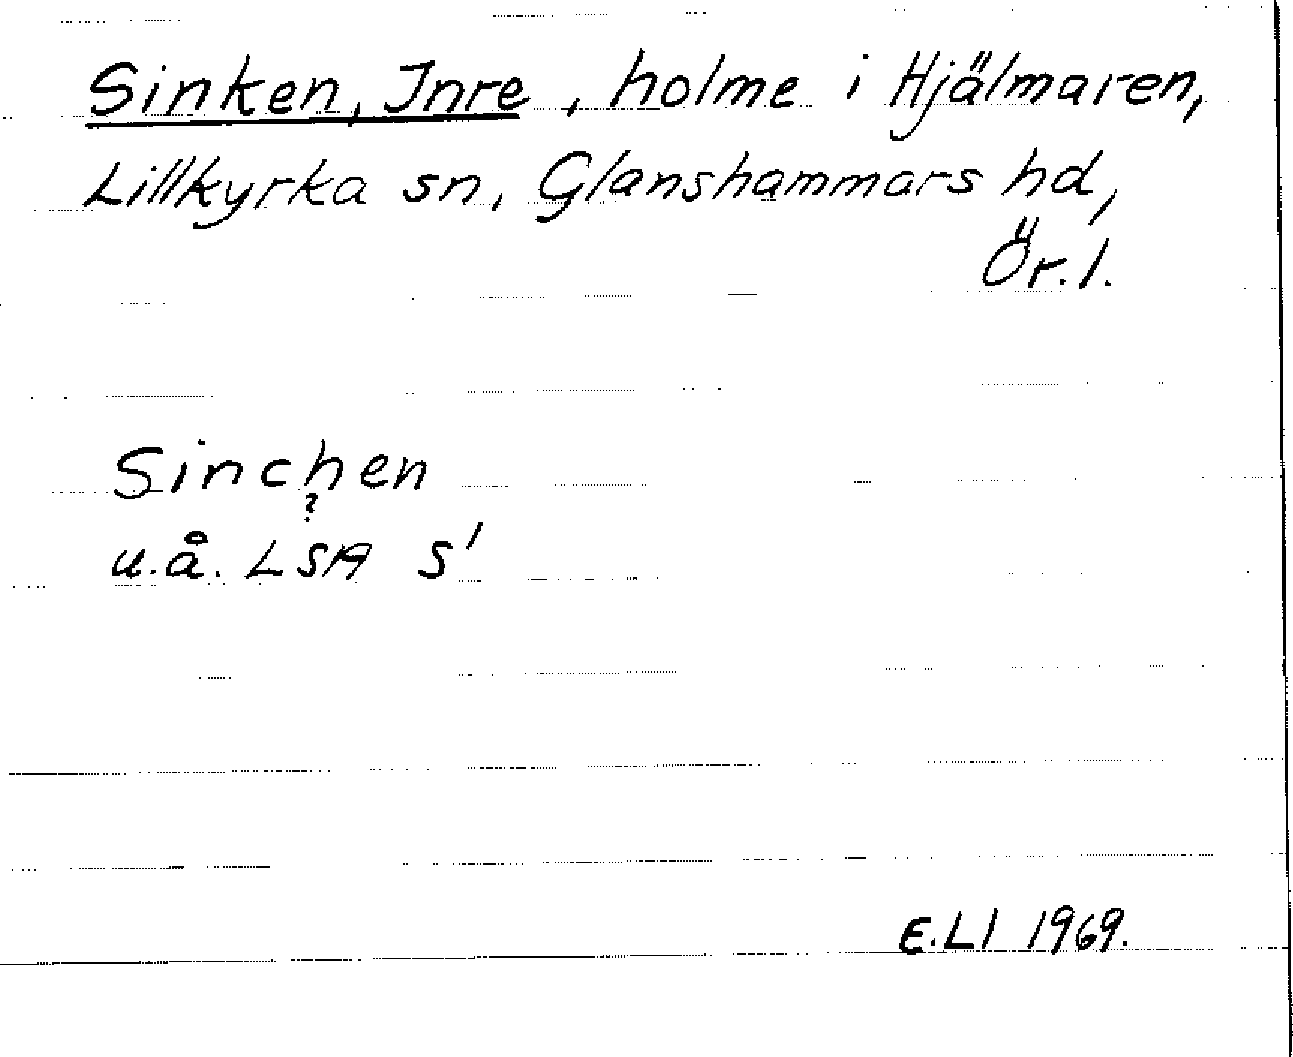 Sinken, Inre, holme i Hjälmaren,
Lillkyrka sn, Glanshammars hd,
Ör. l.
Sinchen
?
u.å. LSA S'
E.Ll 1969.